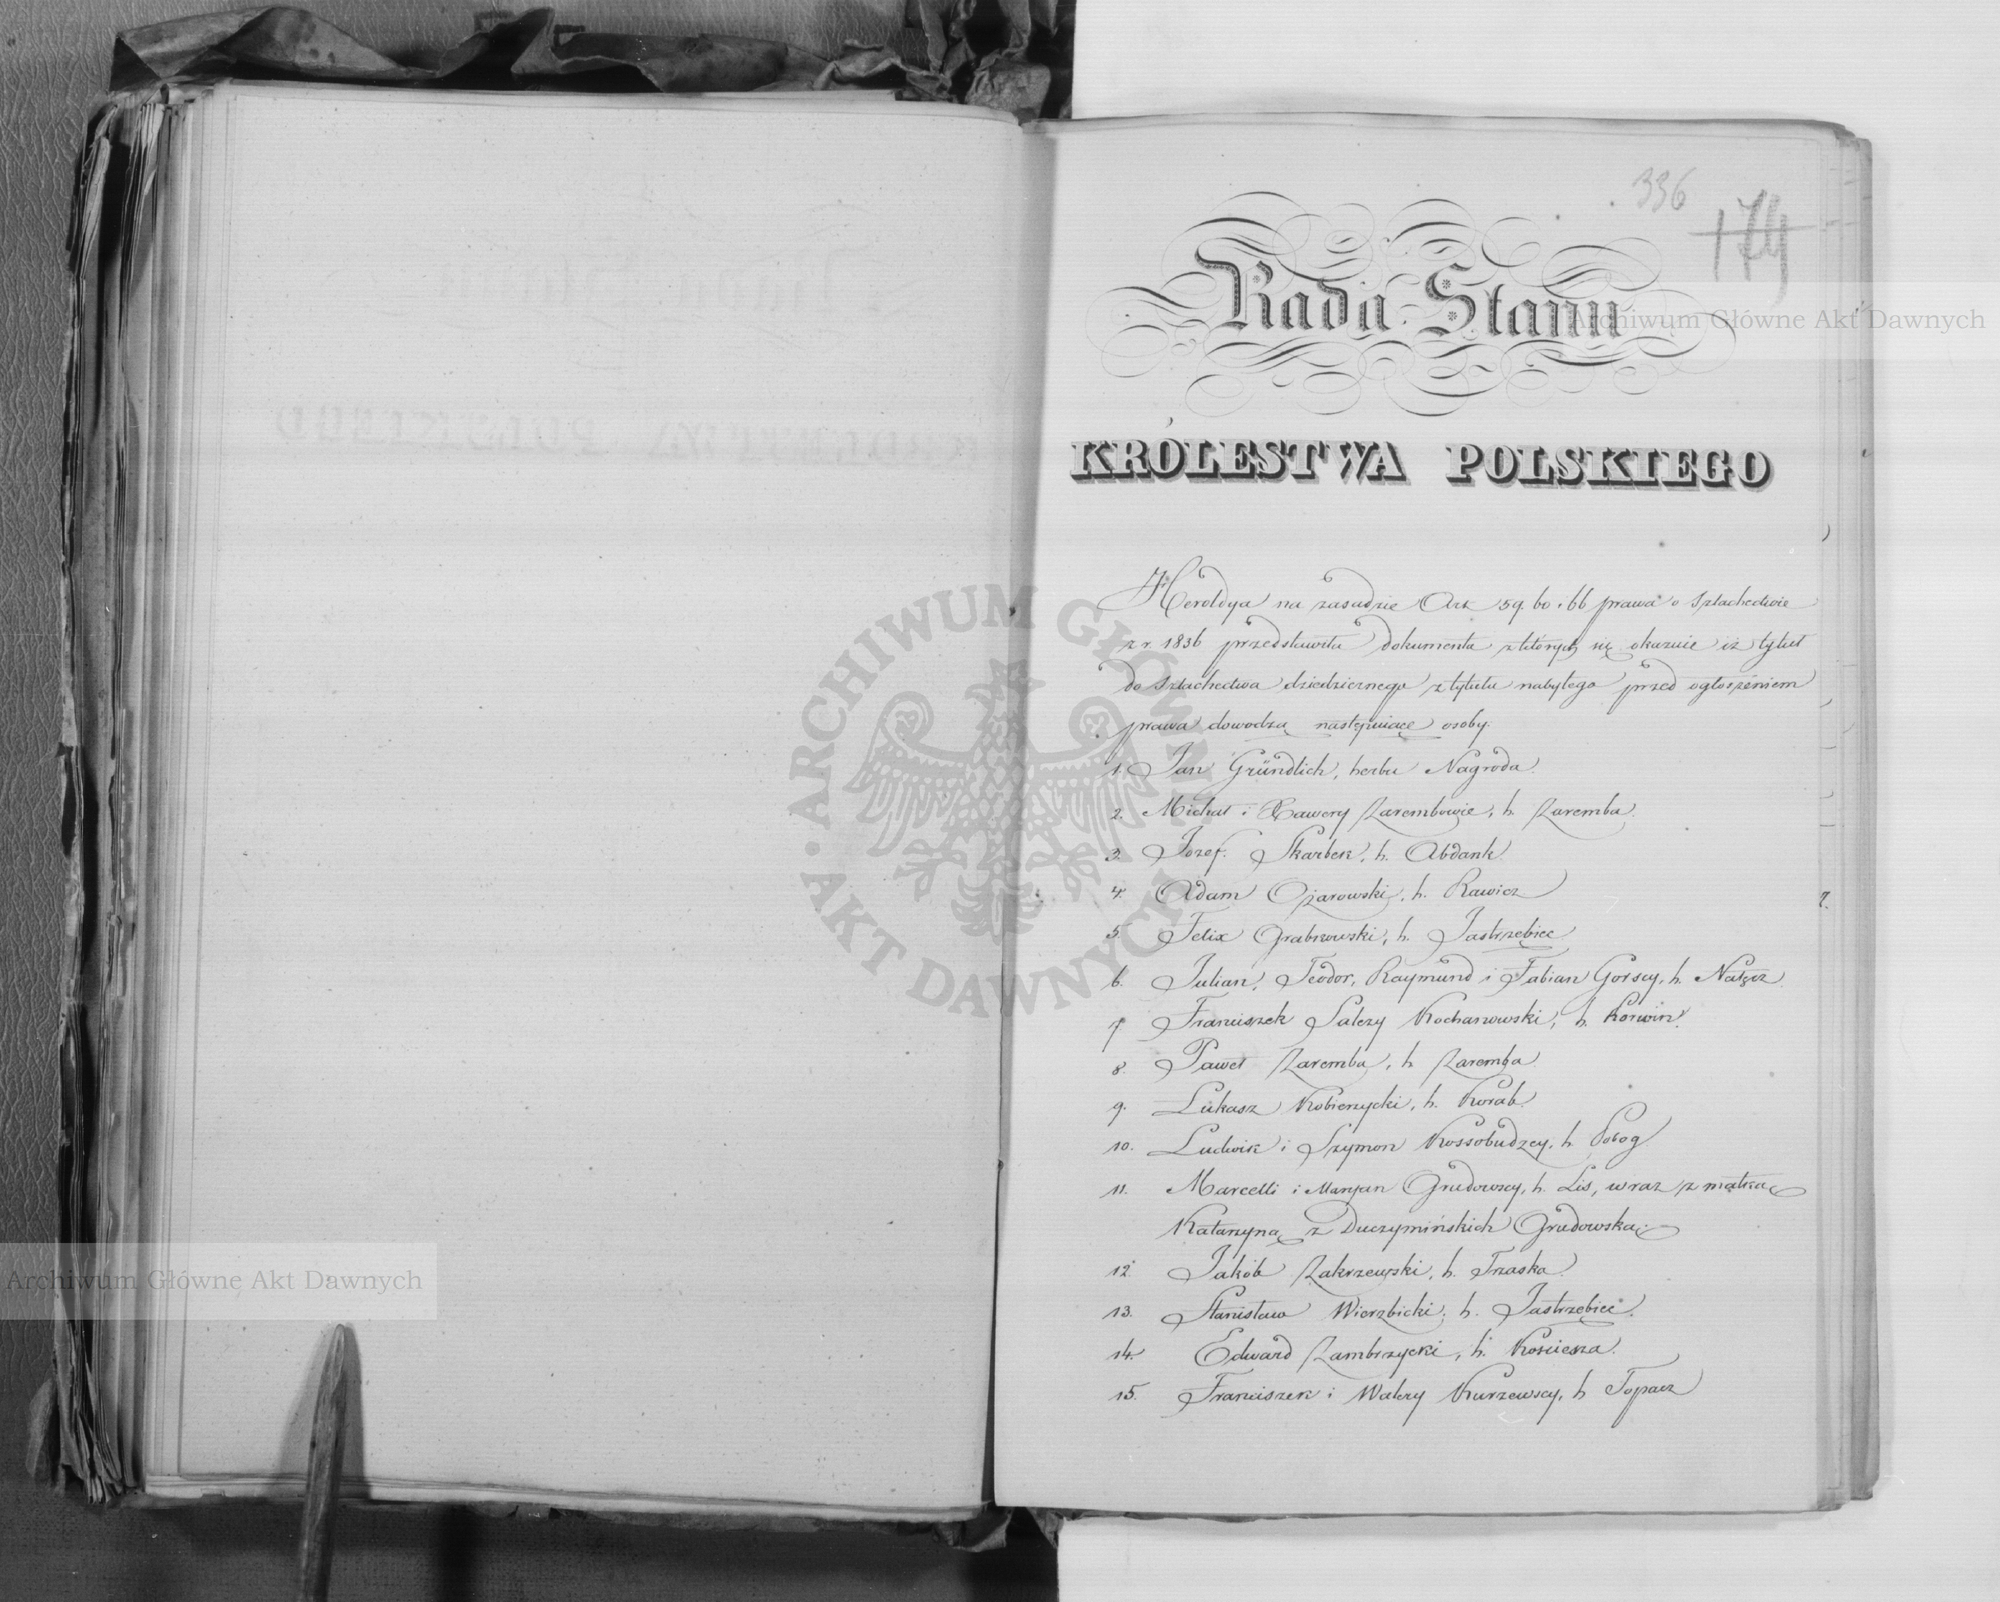 336
174
Rada Stanu
KRÓLESTWA POLSKIEGO
Heroldya na zasadzie Art 59. 60 i 66 prawa o Szlachectwie
z r. 1836 przedstawiła dokumenta z których się okazuie iż tytuł
do szlachectwa dziedzicznego z tytułu nabytego przed ogłoszeniem
prawa dowodzą następuiące osoby.
1. Jan Gründlich, herbu Nagroda.
2. Michał i Xawery Zarembowie, h. Zaremba.
3. Józef Skarbek, h. Abdank.
4. Adam Ożarowski, h. Rawicz
5. Felix Grabkowski, h. Jastrzębiec
6. Julian, Teodor, Raymund i Fabian Gorscy, h. Nałęcz.
7. Franciszek Salezy Kochanowski, h. Korwin.
8. Paweł Zaremba, h. Zaremba
9. Łukasz Kobierzycki, h. Korab.
10. Ludwik i Szymon Kossobudzcy, h. Pobog.
11. Marcelli i Maryan Grudowscy, h. Lis, wraz z matką
Katarzyną z Duczymińskich Grudowską.
12. Jakób Zakrzewski, h. Trzaska.
13. Stanisław Wierzbicki, h. Jastrzębiec.
14. Edward Zambrzycki, h. Kościesza.
15. Franciszek i Walery Kurzewscy, h Topacz
Archiwum Główne Akt Dawnych
Archiwum Główne Akt Dawnych
ARCHIWUM GŁÓWNE AKT DAWNYCH